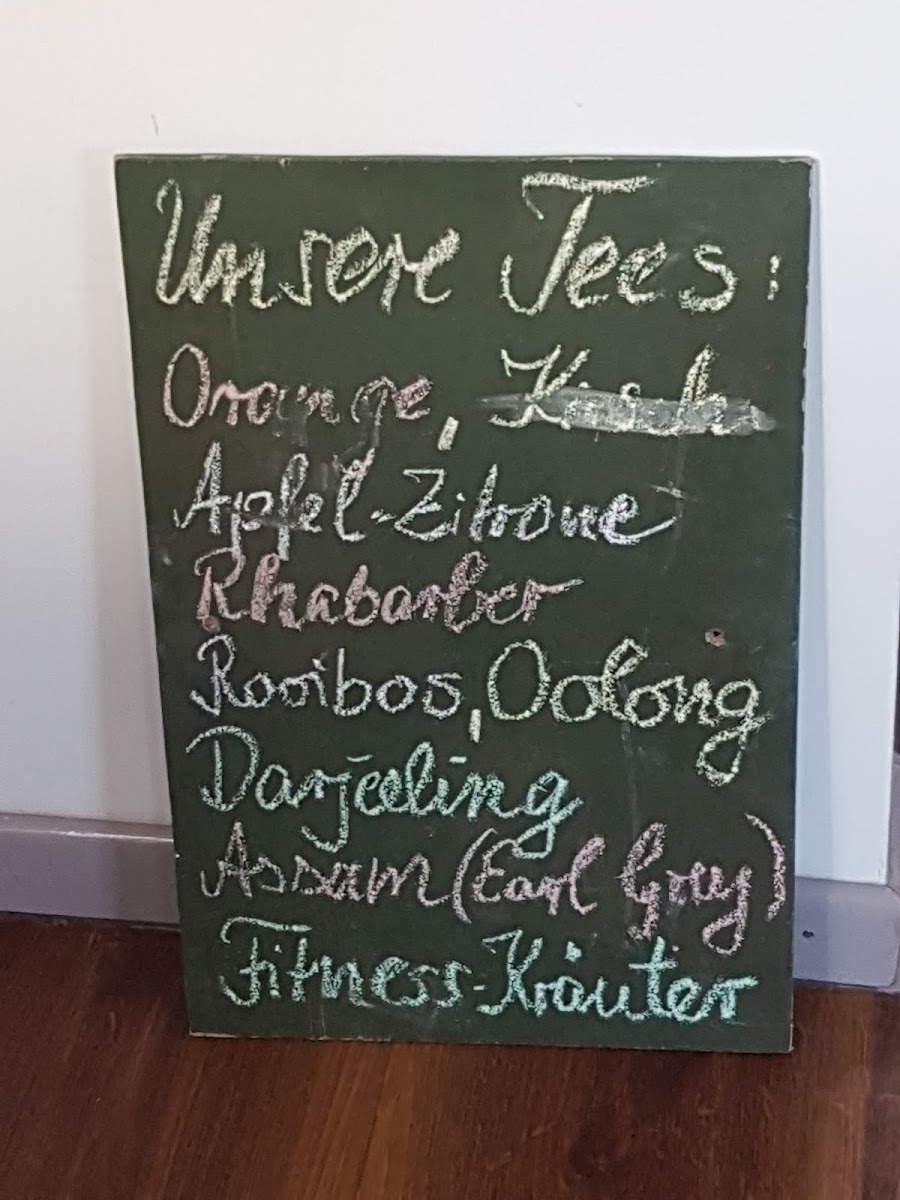 Unsere Tees:
Orange,
Apfel-Zitrone
Rhabarber
Rooibos, Oolong
Darjeeling
Assam (Earl Grey)
Fitness-Kräuter